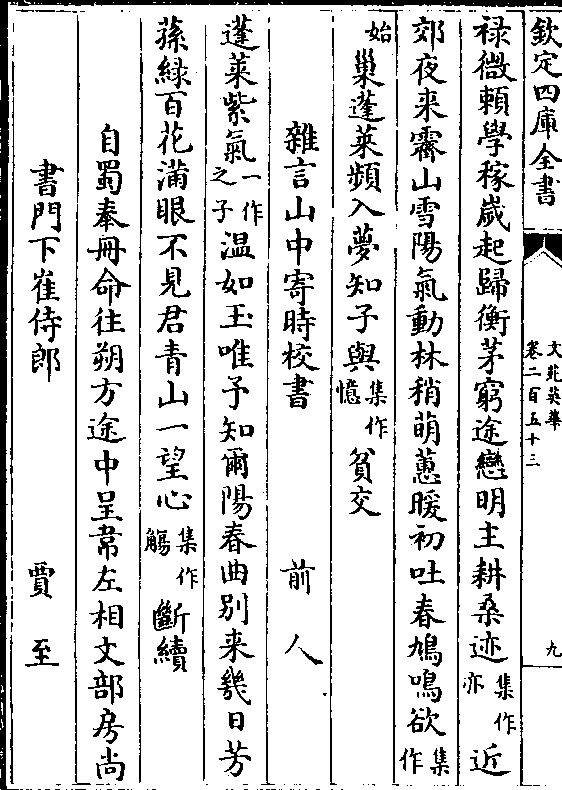 欽定四庫全書
文苑英華
卷二百五十三
九
禄微頼學稼嵗起歸衡茅窮途戀明主耕桑迹集作亦近
郊夜来霽山雪陽氣動林稍萌蕙暖初吐春鳩鳴欲集作
始巢蓬萊頻入夢知子與集作憶貧交
雜言山中寄時校書 前人
蓬萊紫氣一作之子温如玉唯予知爾陽春曲别来幾日芳
蓀緑百花滿眼不見君青山一望心集作觴斷續
自蜀奉冊命往朔方途中呈韋左相文部房尚
書門下崔侍郎 賈至